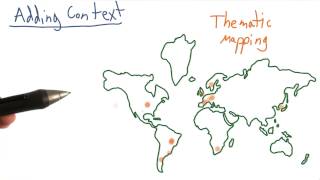 Adding Context
Thematic
mapping